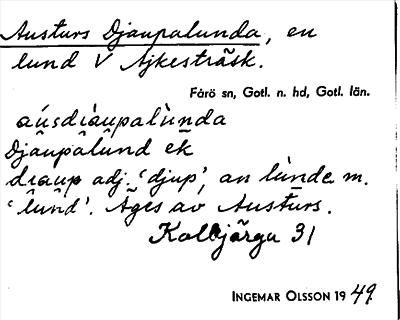 Austurs Djaupalunda, en
lund V Ajkesträsk.
Fårö sn, Gotl. n. hd, Gotl. län.
aúsdiàupalùnda
Djâupâlûnd ek
diaup adj. 'djup', an lùnde m.
'lund'. Äges av Austurs.
Kolbjärga 31
INGEMAR OLSSON 1949